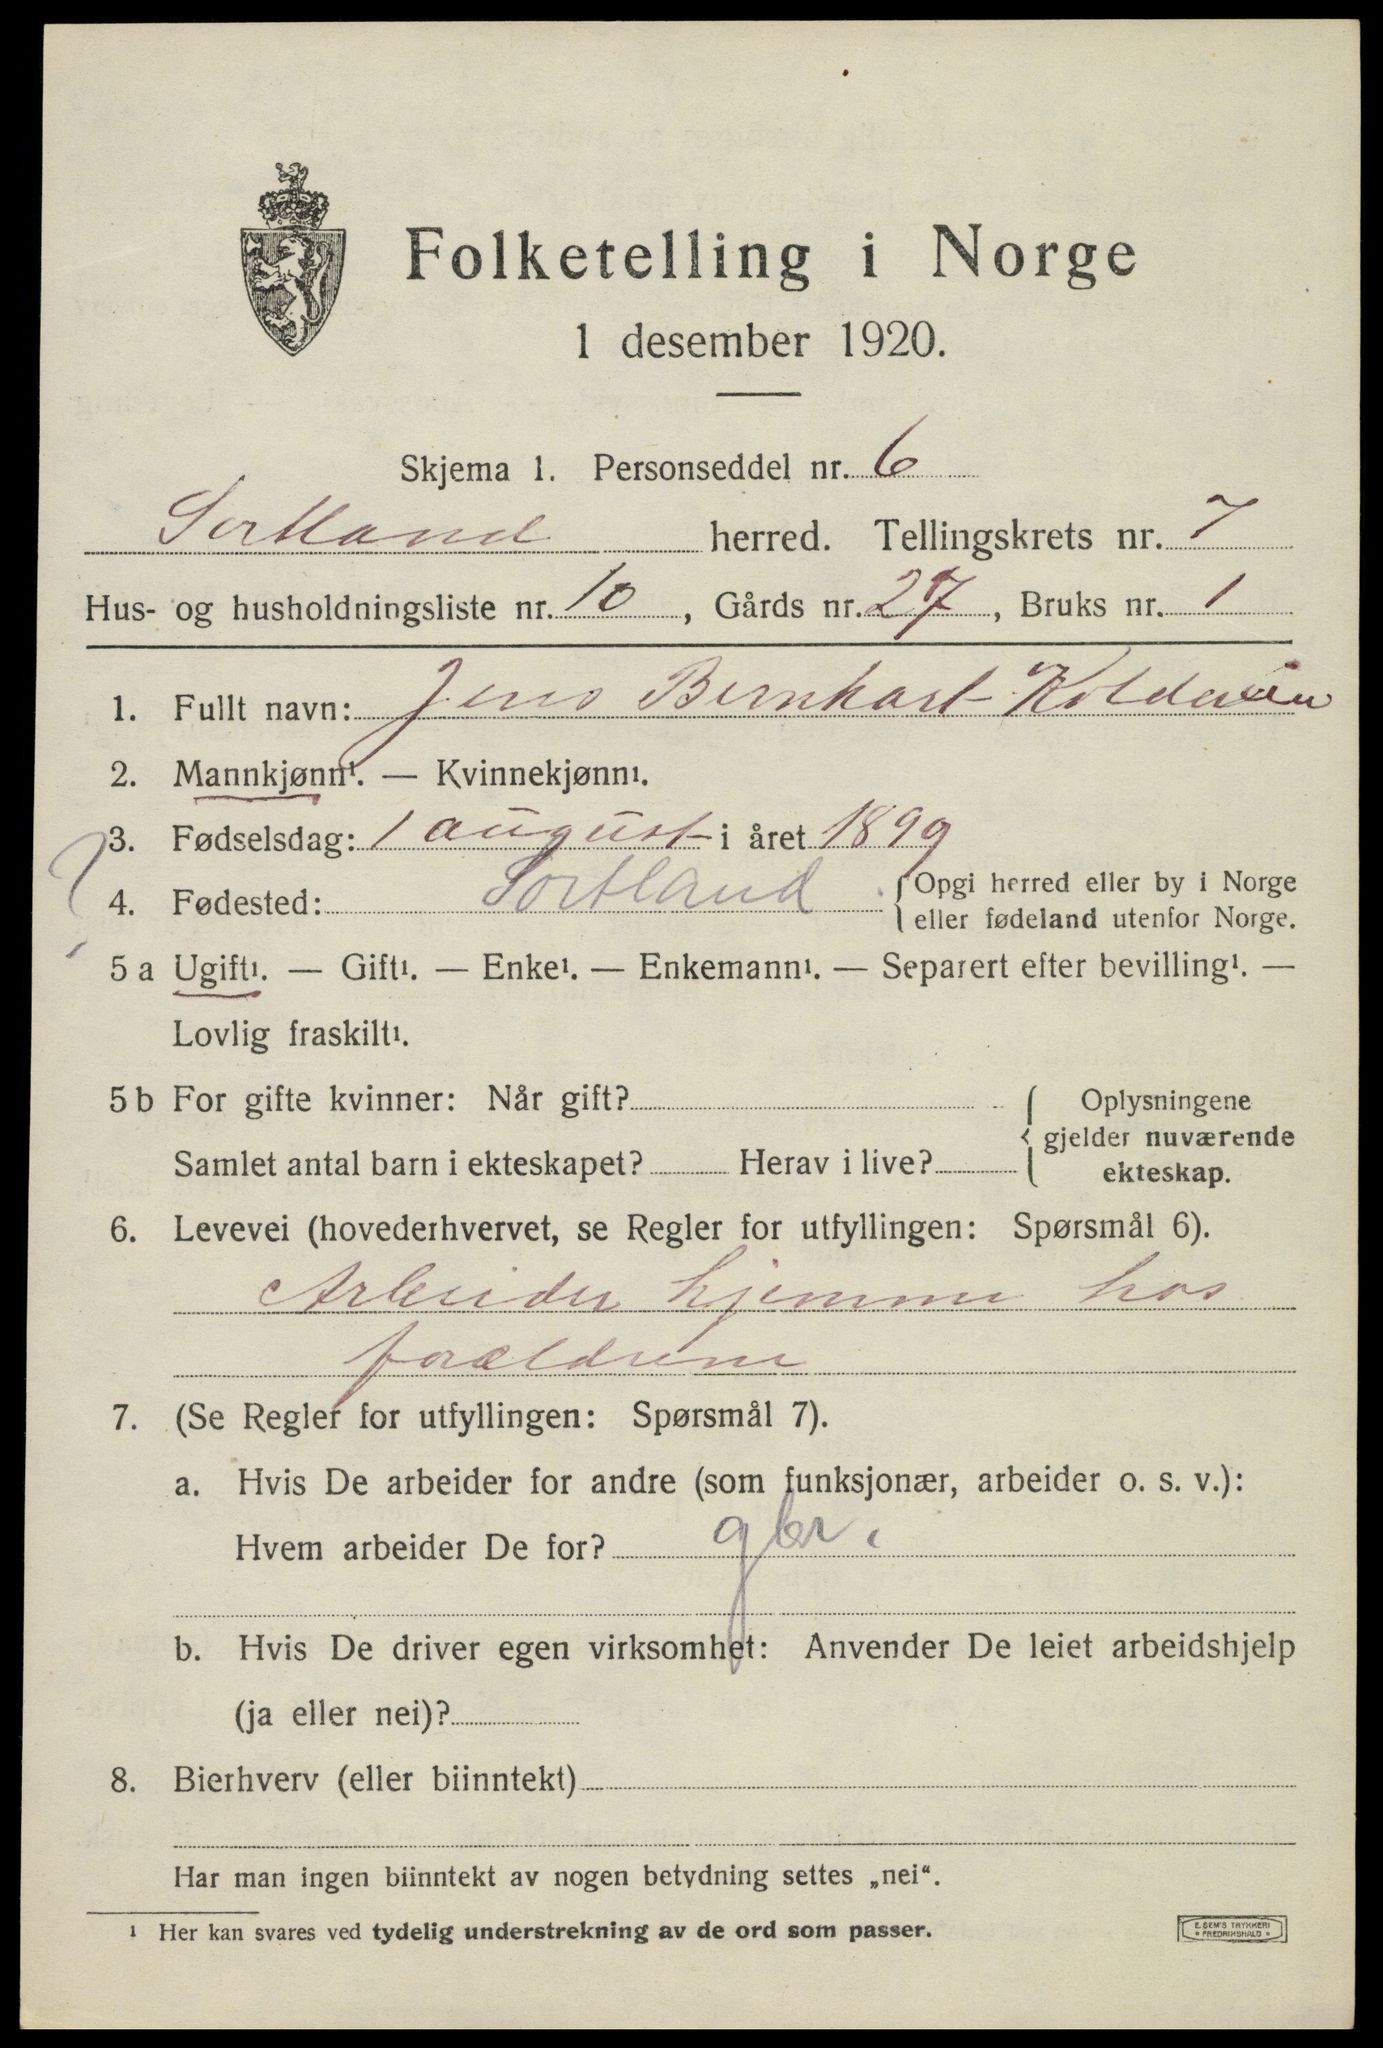 Folketelling i Norge
1 desember 1920.
Skjema 1. Personseddel nr. 6
Sortland herred. Tellingskrets nr. 7
Hus- og husholdningsliste nr. 10, Gårds nr. 27, Bruks nr. 1
1. Fullt navn: Jens Bernhart
2. Mannkjønn¹. — Kvinnekjønn¹.
3. Fødselsdag: 1 august i året 1899
4. Fødested: Sortland {Opgi herred eller by i Norge
eller fødeland utenfor Norge.
5 a Ugift¹. — Gift¹. — Enke¹. — Enkemann¹. — Separert efter bevilling¹. —
Lovlig fraskilt¹.
5 b For gifte kvinner: Når gift? { Oplysningene
gjelder nuværende
Samlet antal barn i ekteskapet? Herav i live?
ekteskap.
6. Levevei (hovederhvervet, se Regler for utfyllingen: Spørsmål 6).
Arbeider hjemme hos
forældrene
7. (Se Regler for utfyllingen: Spørsmål 7).
a. Hvis De arbeider for andre (som funksjonær, arbeider o. s. v.):
Hvem arbeider De for? gbr.
b. Hvis De driver egen virksomhet: Anvender De leiet arbeidshjelp
(ja eller nei)?
8. Bierhverv (eller biinntekt)
Har man ingen biinntekt av nogen betydning settes „nei“.
¹ Her kan svares ved tydelig understrekning av de ord som passer.
E. SEM'S TRYKKERI
FREDRIKSHALD